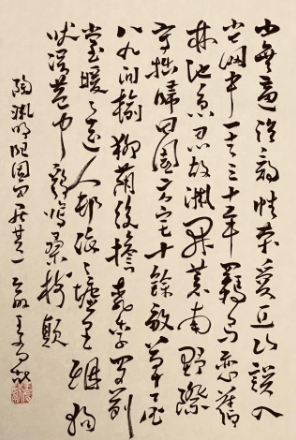 少無適俗韻性本愛丘山誤入
塵網中一去三十年羈鳥戀舊
林池魚思故淵開荒南野際
守拙歸園田方宅十餘畝草屋
八九間榆柳蔭後檐桃李羅前
堂曖曖遠人村依依墟里煙狗
吠深巷中雞鳴桑樹顛
陶淵明歸園田居其一